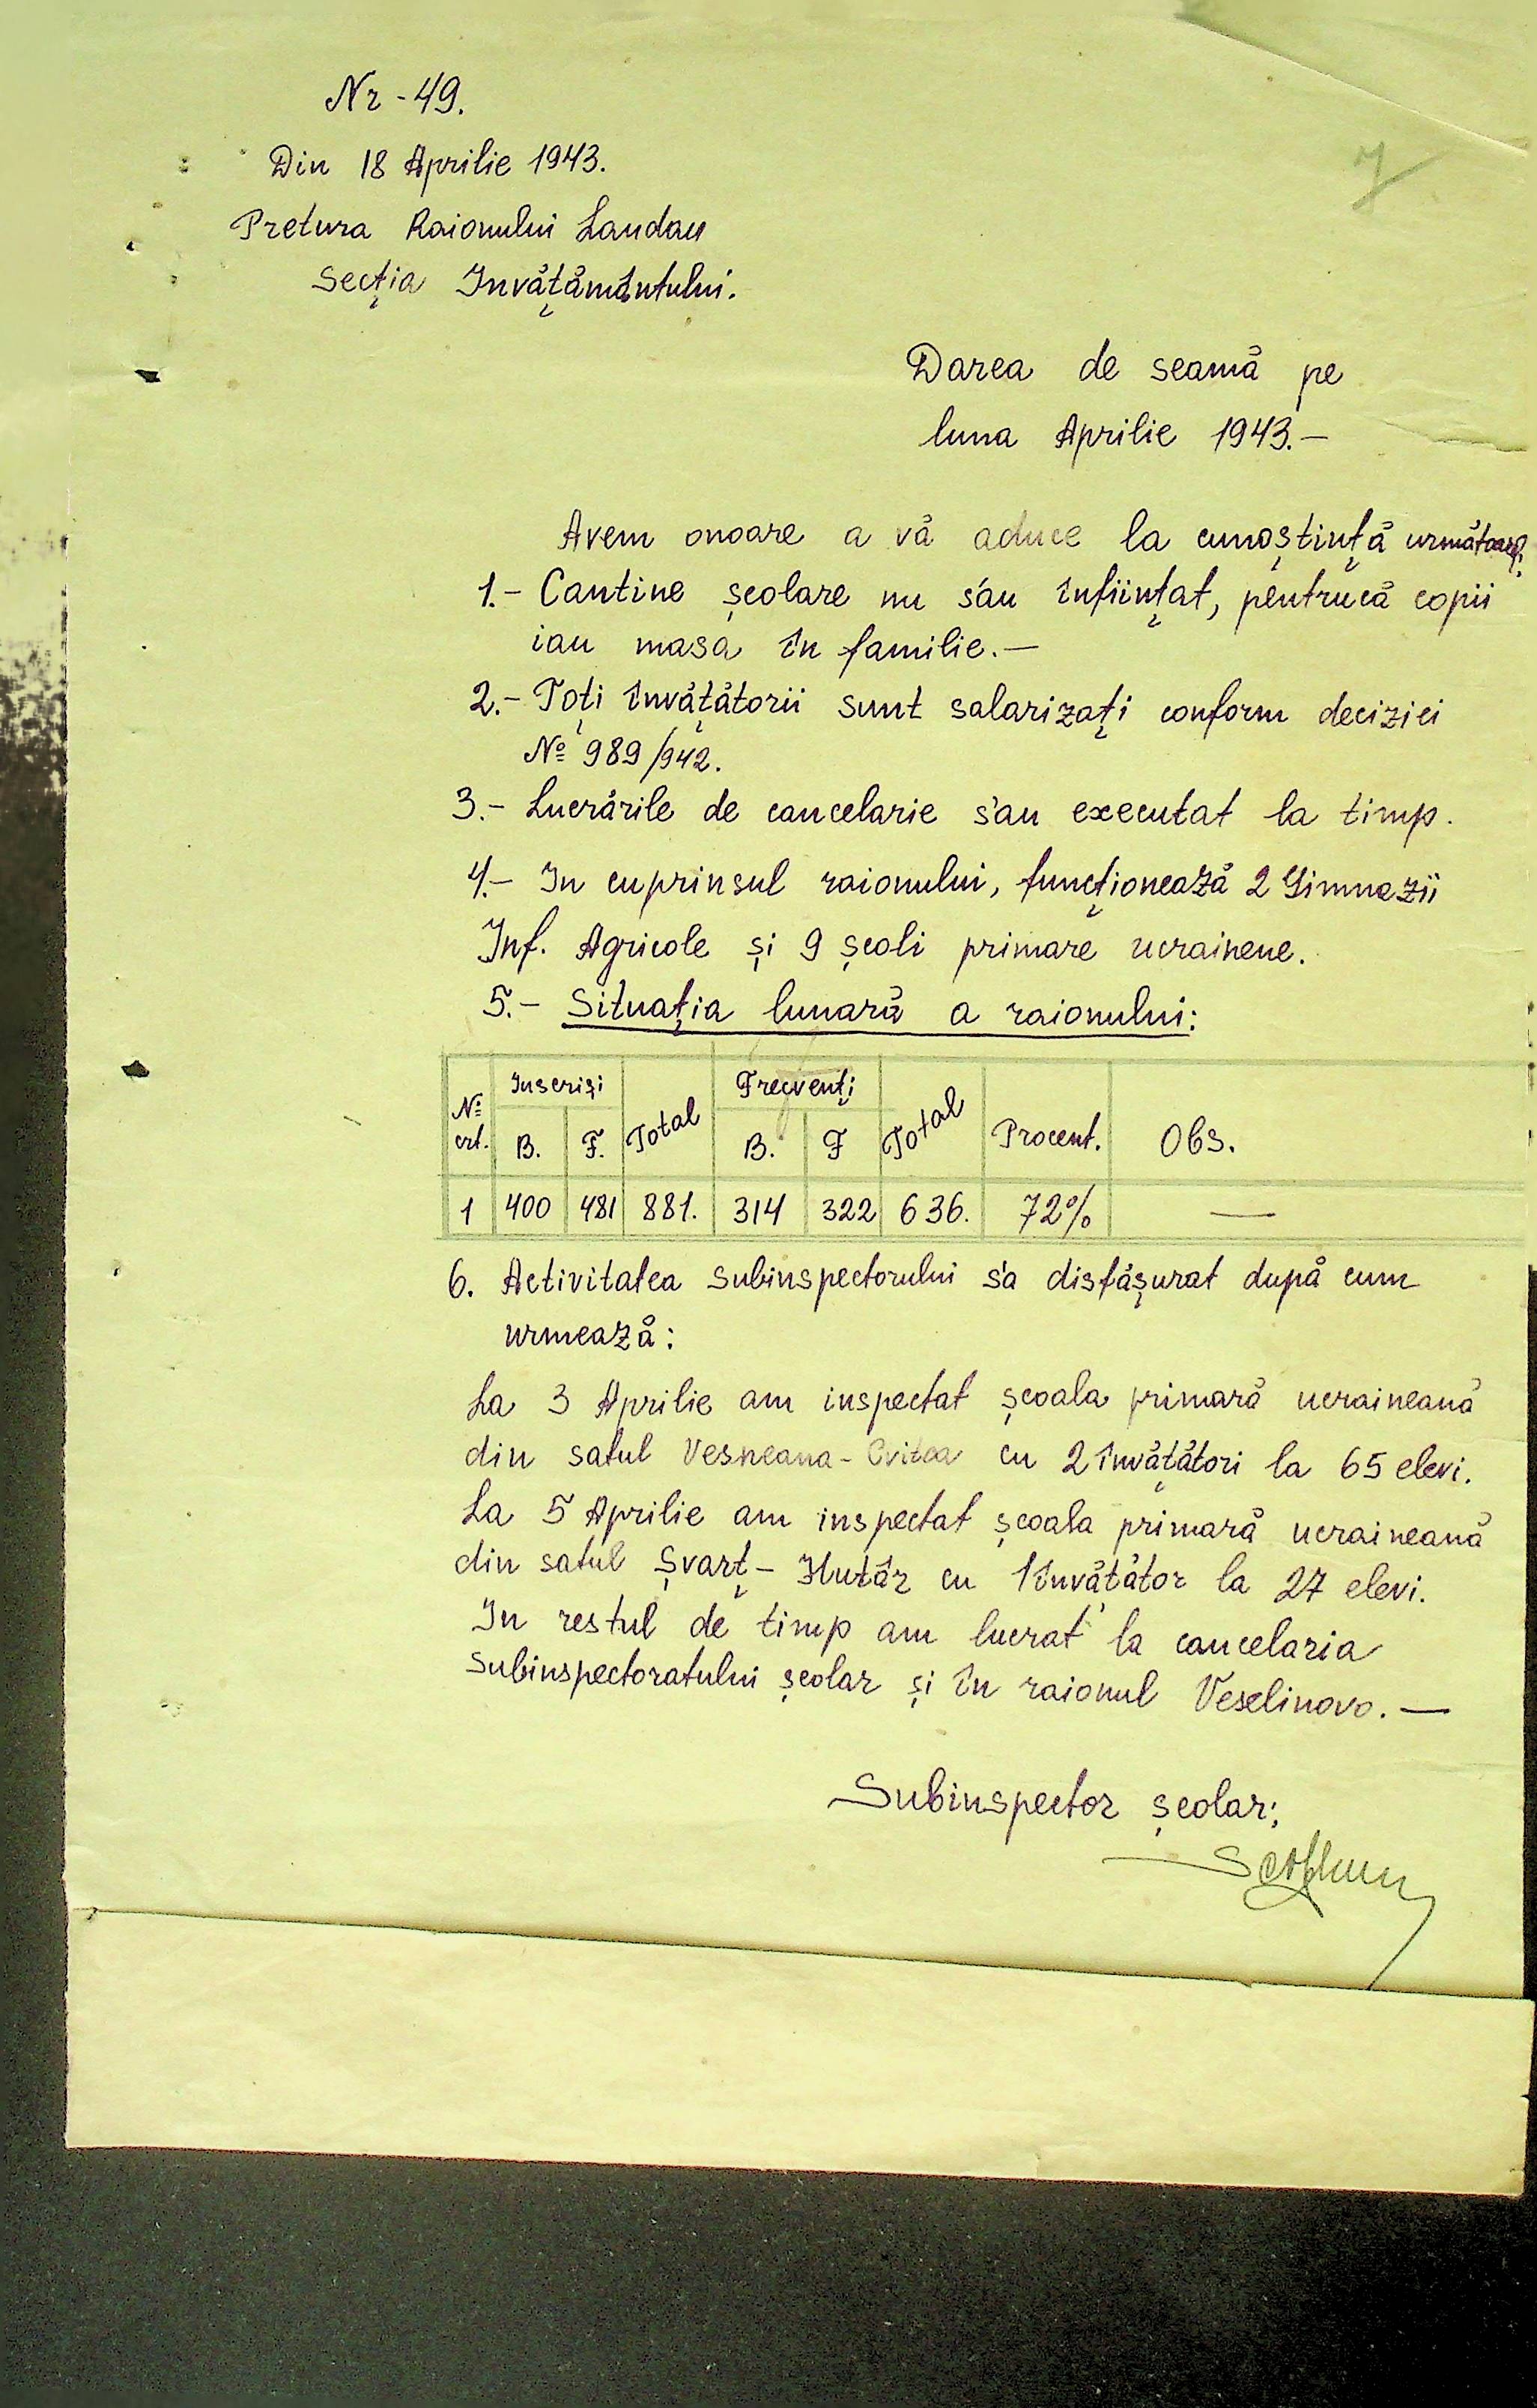 7
Nr - 49.
Din 18 Aprilie 1943.
Pretura Raionului Landau
Secția Invățământului.
Darea de seamă pe
luna Aprilie 1943.—
Avem onoare a vă aduce la cunoștință următoarele:
1.- Cantine școlare nu s'au înființat, pentrucă copii
iau masa în familie.—
2.- Toți învățătorii sunt salarizați conform deciziei
№ 989/942.
3.- Lucrările de cancelarie s'au executat la timp.
4.- In cuprinsul raionului, funcționează 2 Gimnazii
Inf. Agricole și 9 școli primare ucrainene.
5.- Situația lunară a raionului:
№ crt. Inscriși Total Frecvenți Total Procent. Obs.
B. F. B. F
1 400 481 881. 314 322 636. 72% —
6. Activitatea subinspectorului s'a disfășurat după cum
urmează:
La 3 Aprilie am inspectat școala primară ucraineană
din satul Vesneana- cu 2 învățători la 65 elevi.
La 5 Aprilie am inspectat școala primară ucraineană
din satul Șvarț- Hutăr cu 1 învățător la 27 elevi.
In restul de timp am lucrat la cancelaria
subinspectoratului școlar și în raionul Veselinovo.—
Subinspector școlar;